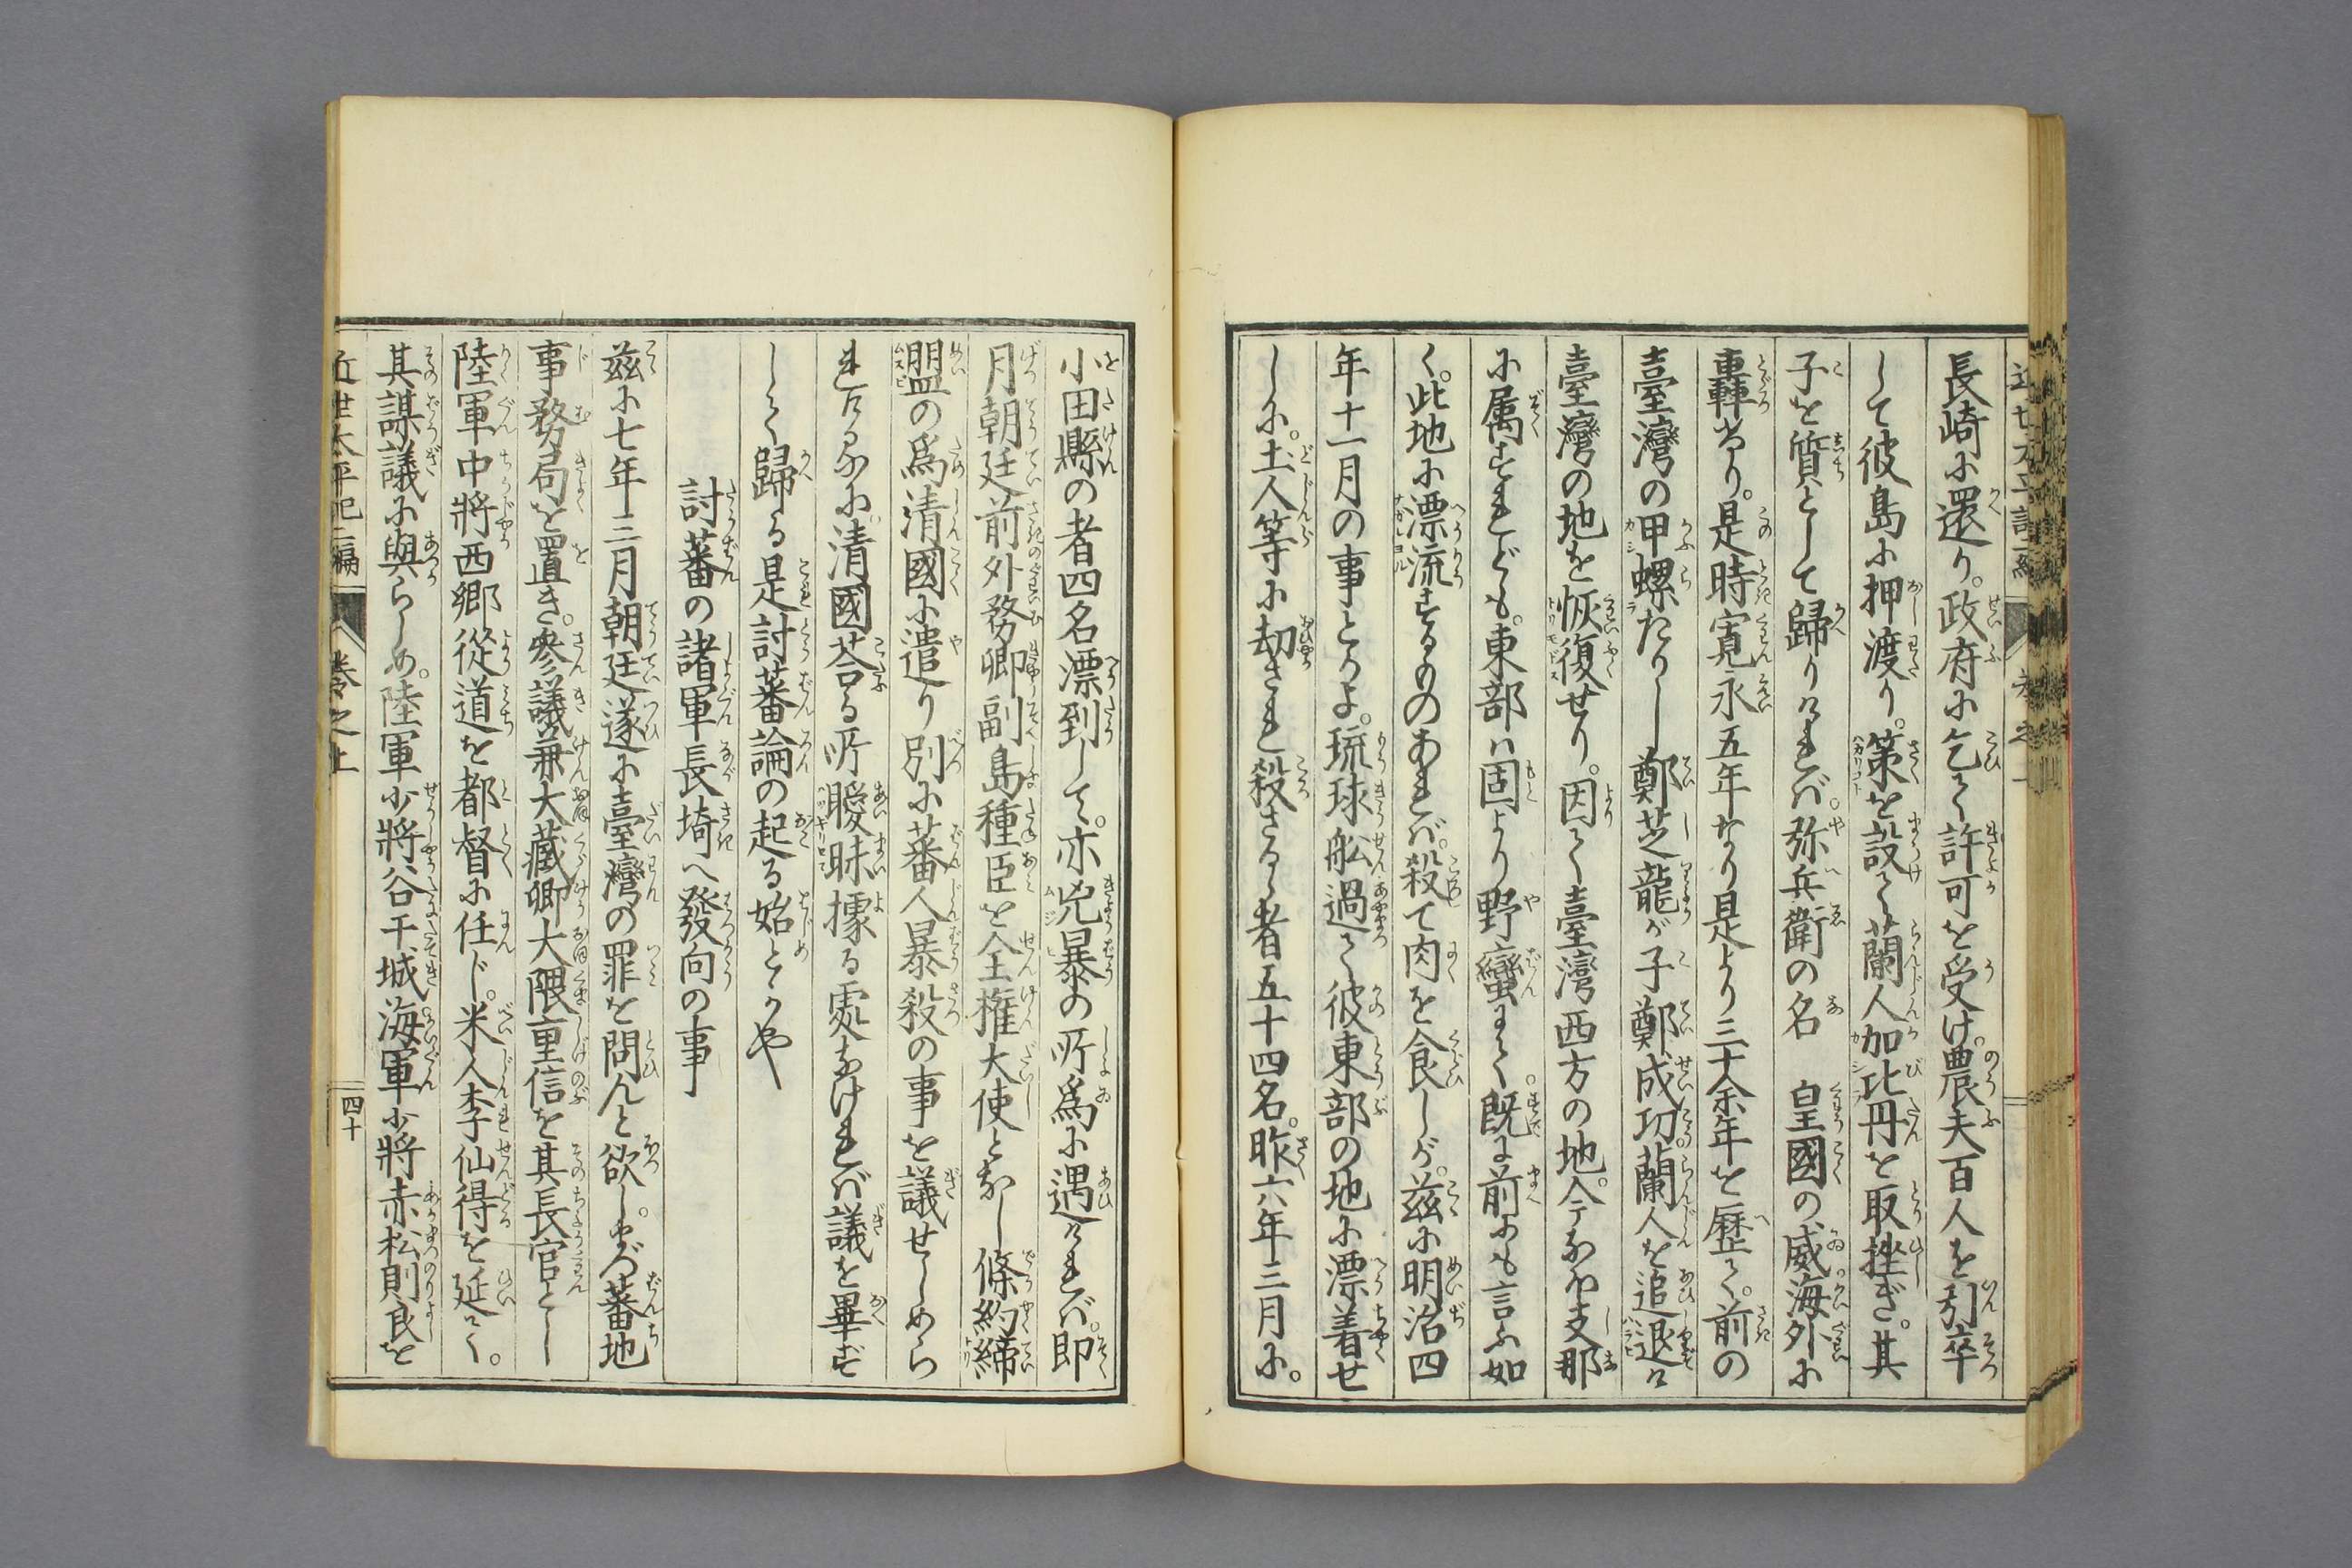 長崎に還り。政府に乞て許可を受け。農夫百人を引卒
して彼島に押渡り。策を設て蘭人加比丹を取挫ぎ。其
子を質として歸りければ。弥兵衛の名　皇國の威海外に
轟けり。是時寛永五年なり是より三十余年を歴て。前の
臺灣の甲螺たりし鄭芝龍が子鄭成功。蘭人を追退け
臺灣の地を恢復せり。因て臺灣西方の地。今なほ支那
に属すれども。東部ハ固より野蠻にて。既に前にも言ふ如
く。此地に漂流するものあれば。殺て肉を食ひしが。茲に明治四
年十一月の事とかよ。琉球舩過て彼東部の地に漂着せ
しに。土人等に刧され殺さるゝ者五十四名。昨六年三月に。
小田縣の者四名漂到して。亦兇暴の所爲に遇ければ。即
月朝廷前外務卿副島種臣を全権大使となし條約締
盟の爲清國に遣り別に蕃人暴殺の事を議せしめら
れけるに清國荅る所曖昧據る處なければ議を畢ず
して歸る是討蕃論の起る始とかや
討蕃の諸軍長埼へ發向の事
茲に七年三月朝廷遂に臺灣の罪を問んと欲し。まづ蕃地
事務局を置き。參議兼大藏卿大隈重信を其長官とし
陸軍中將西郷從道を都督に任じ。米人李仙得を延て。
其謀議に與らしめ。陸軍少將谷干城海軍少將赤松則良を
近世太平記二編　巻之上　四十